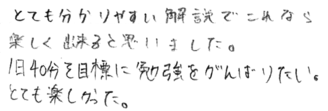 とても分かりやすい解説でこれなら
楽しく出来ると思いました。
1日40分を目標に勉強をがんばりたい。
とても楽しかった。